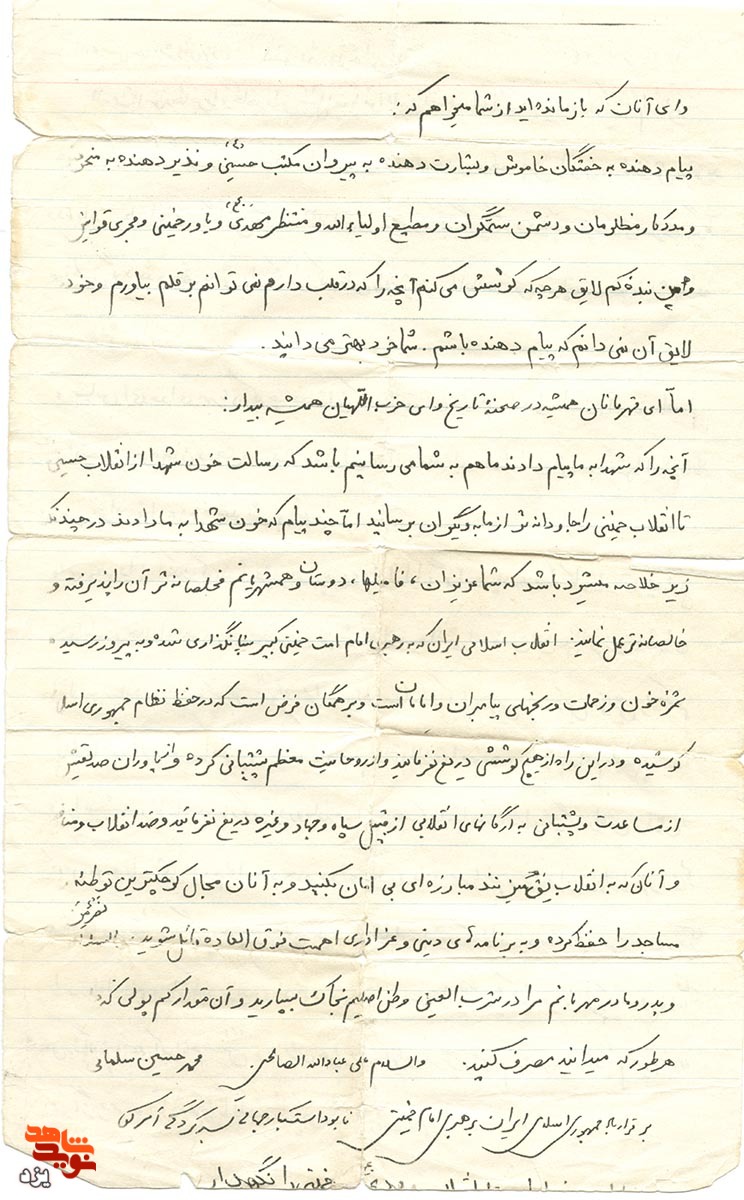 وای آنان که بازمانده اید از شما میخواهم که :
پیام دهنده به خفتگان خاموش و بشارت دهنده به پیروان مکتب حسینی و نذیر دهنده به
و مددکار مظلومان و دشمن ستمگران و مطیع اولیاء الله و منتظر مهدی (عج) و یاور خمینی و مجری قوانین
و من بنده کم لایق هر چه که کوشش می کنم آنچه را که در قلب دارم نمی توانم بر قلم بیاورم و خود
لایق آن نمی دانم که پیام دهنده باشم . شما خود بهتر می دانید .
امّا ای قهرمانان همیشه در صحنهٔ تاریخ و ای حزب اللّهیان همیشه بیدار :
آنچه را که شهدا به ما پیام دادند ما هم به شما می رسانیم باشد که رسالت خون شهدا از انقلاب حسینی
تا انقلاب خمینی را جاودانه تر از ما به دیگران برسانید امّا چند پیام که خون شهدا به ما دادند در چند
زیر خلاصه میشود باشد که شما عزیزان ، فامیلها ، دوستان و همشهریانم مخلصانه تر آن را پذیرفته و
خالصانه تر عمل نمائید . انقلاب اسلامی ایران که به رهبری امام امت خمینی کبیر بنیانگذاری شده و به پیروز رسیده
ثمره خون و زحمات و رنجهای پیامبران و امامان است و بر همگان فرض است که در حفظ نظام جمهوری
کوشیده و در این راه از هیچ کوششی دریغ نفرمائید و از روحانیت معظم پشتیبانی کرده و
از مساعدت و پشتیبانی به ارگانهای انقلابی از قبیل سپاه و جهاد و غیره دریغ نفرمائید و ضد انقلاب و
و آنان که به انقلاب نیش میزنند مبارزه ای بی امان بکنید و به آنان مجال کوچکترین توطئه
نفرمائید
مساجد را حفظ کرده و به برنامه های دینی و عزاداری اهمیت فوق العاده قائل شوید .
و پدر و مادر مهربانم مرا در شرب العینی وطن اصلیم بخاک بسپارید و آن مقدار کم پولی که
هر طور که میدانید مصرف کنید . والسلام علی عبادالله الصالحین . محمد حسین سلمانی
برقرار باد جمهوری اسلامی ایران برهبری امام خمینی نابود استکبار جهانی بسرکردگی آمریکا
خمینی را نگهدار
نوید شاهد
یزد